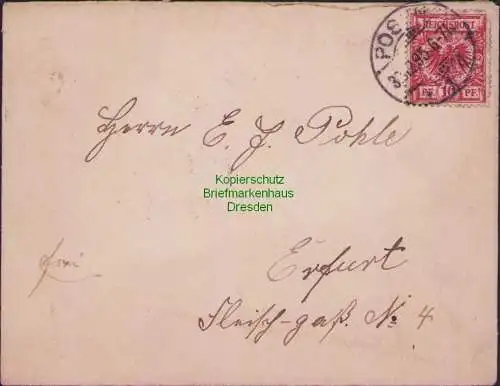 POS
REICHSPOST
PF. 10 PF.
Herrn E. J. Pohle
Kopierschutz
Briefmarkenhaus
Dresden
frei
Erfurt
Fleisch-gaß. No 4